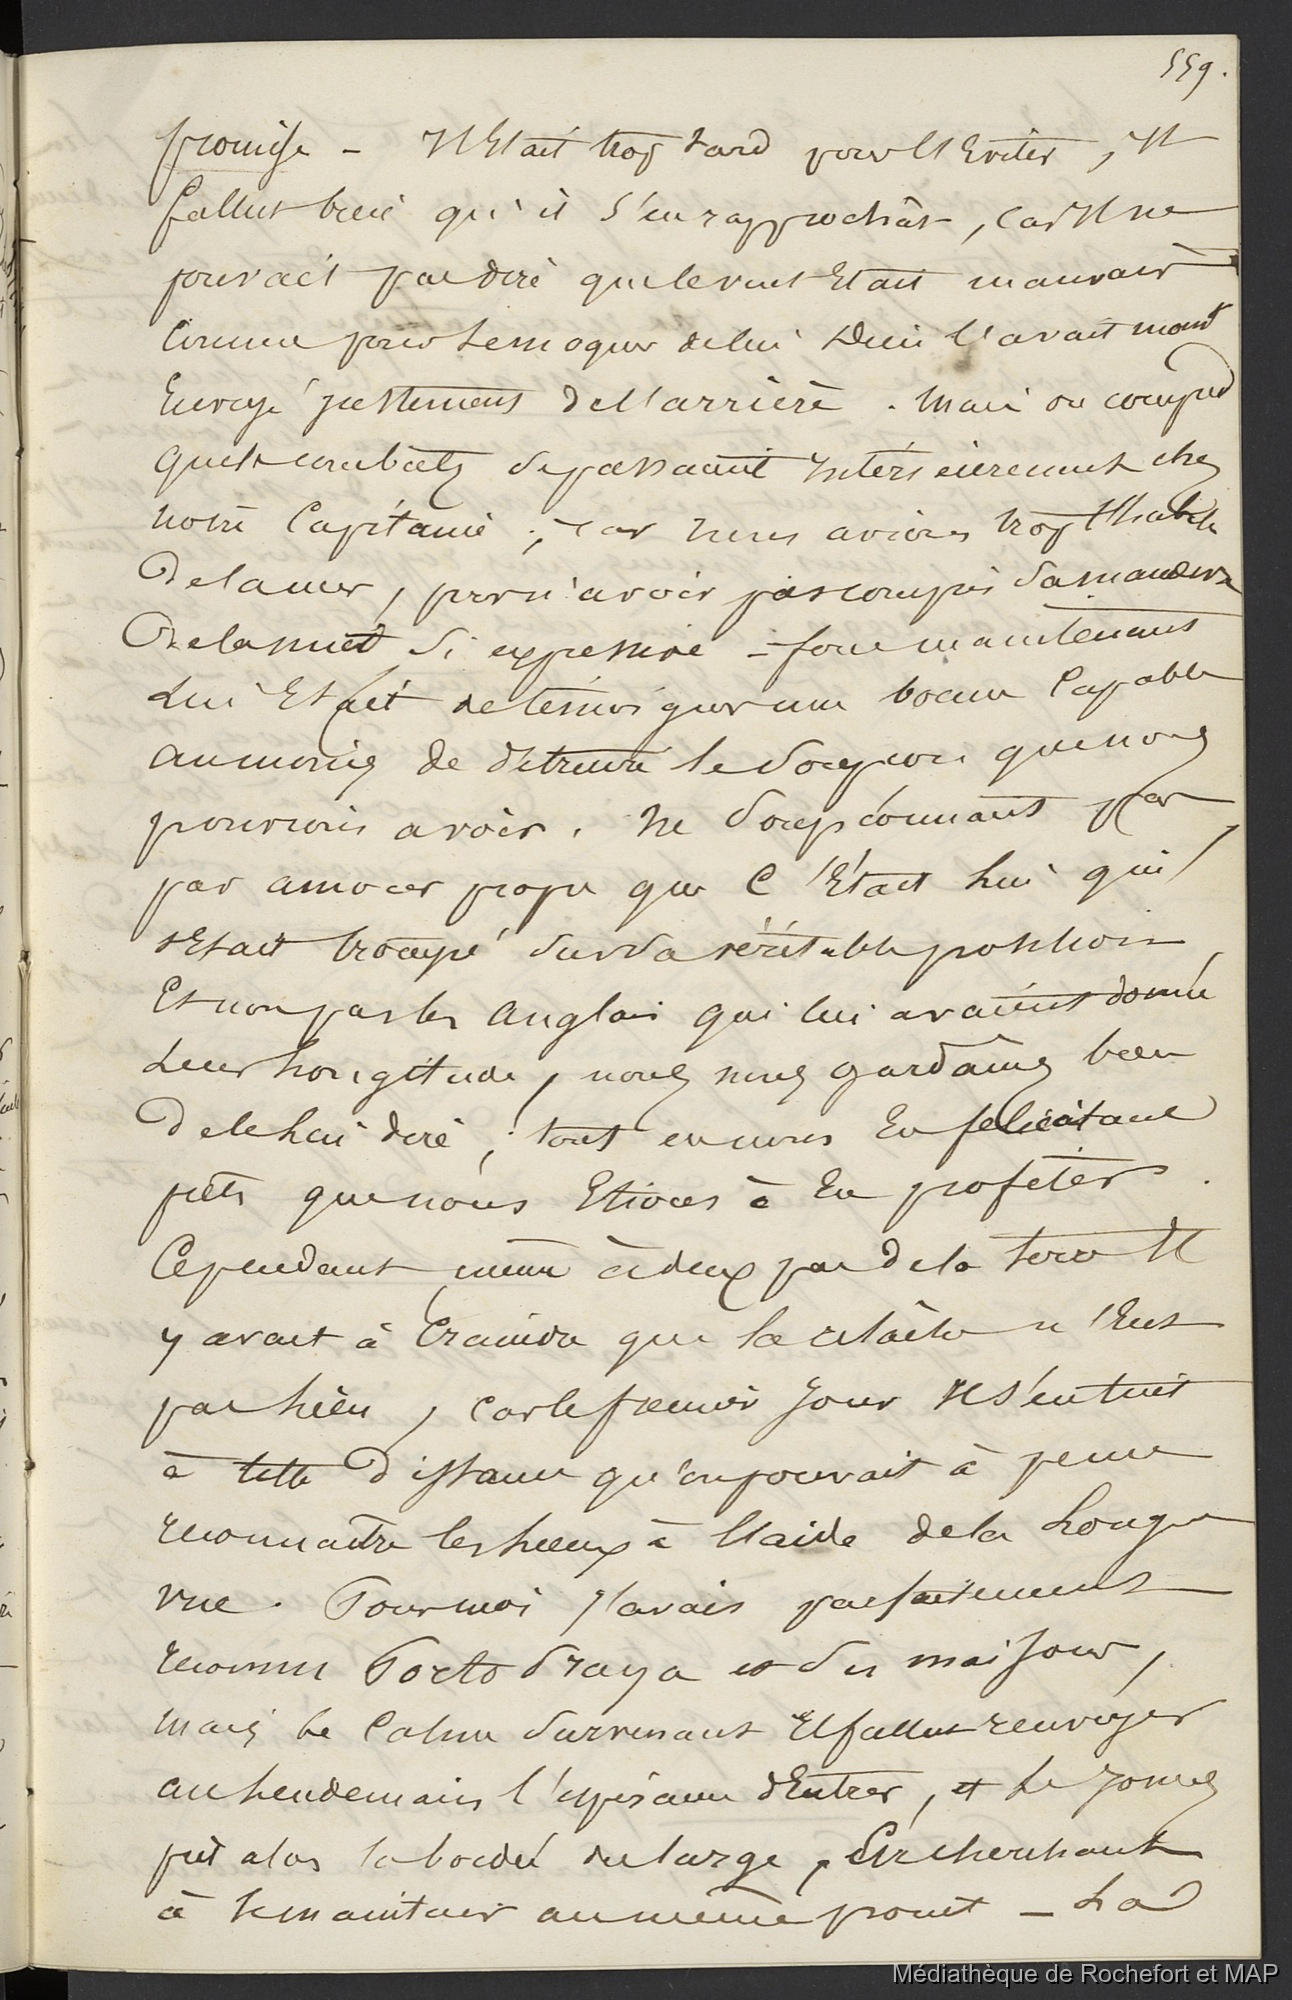 559.
promise – Il Etait trop tard pour l'Eviter, Il
fallut bien qu'il s'en rapprochât, car Il ne
pouvait pas dire que le vent Etait mauvais
Comme pour se moquer de lui Dieu l'avait
Envoyé justement de l'arrière. Mais on comprend
quels combats se passaient Intérieurement chez
notre Capitaine ; car nous avions trop l'habitude
De la mer, pour n'avoir pas compris sa manœuvre
De la nuit si expressive – force maintenant
Lui Etait de témoigner une bonne Capable
au moins de détruire le soupçon que nous
pouvions avoir. Ne soupçonnant pas
par amour propre que C'Etait lui qui
s'Etait trompé sur sa véritable position
Et non pas les Anglais qui lui avaient donné
Leur Longitude, nous nous gardâmes bien
De le Lui dire, ; tout en nous En félicitant
prêts que nous Etions à En profiter.
Cependant même à deux pas de la terre Il
y avait à Craindre que la relâche n'Eut
pas lieu, car le premier Jour Il s'en tint
à telle Distance qu'on pouvait à peine
reconnaître les Lieux à l'aide de la Longue
vue. Pour moi J'avais parfaitement
reconnu Porto Praya et ses maisons,
mais le Calme survenant Il fallut renvoyer
au Lendemain l'espérance d'Entrer, et Le
prit alors la bordée du large, En cherchant
à se maintenir au même point – La
Médiathèque de Rochefort et MAP